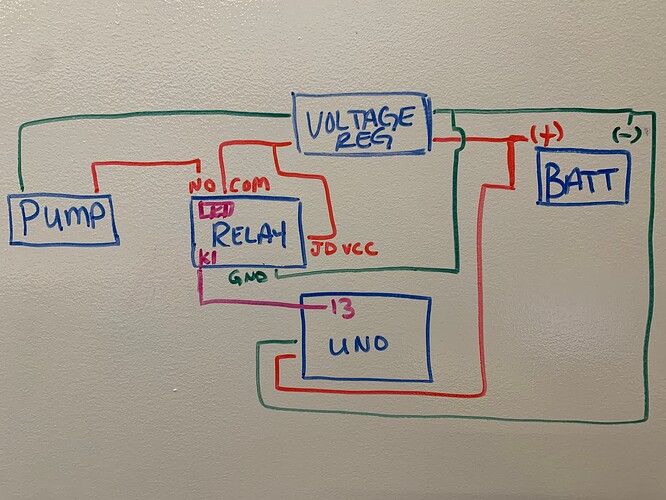 VOLTAGE
REG
(+)
(-)
BATT
NO COM
PUMP
RELAY
JDVCC
K1
GND
13
UNO